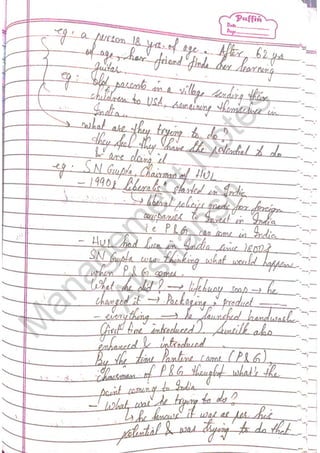 Puffin
Date
Page
eg: a person 18 yrs. of age. After 62 yrs
of age, her friend finds her learning
guitar.
eg: Old parents in a village sending their
children to USA, remaining themselves in
India.
→ what are they trying to do?
they feel they have the potential to do
it are doing it
eg: SN Gupta, Chairman of HUL
- 1990s liberalis started in India
↳ liberal policies made for foreign
companies to invest in India
i.e P&G can come in India
- HUL had been in India since 1800s
SN Gupta was thinking what would happen
when P&G comes.
What he did? → lifebuoy soap → he
changed it → Packaging, product
- everything → he launched handwash
(first time introduced). sunsilk also
enhanced & introduced
By the time Pantene came (P&G),
chairman of P&G thought what's the
point coming to India
- What was he trying to do?
↳ he knows it was as per his
potential & was trying to do that
Management Notes